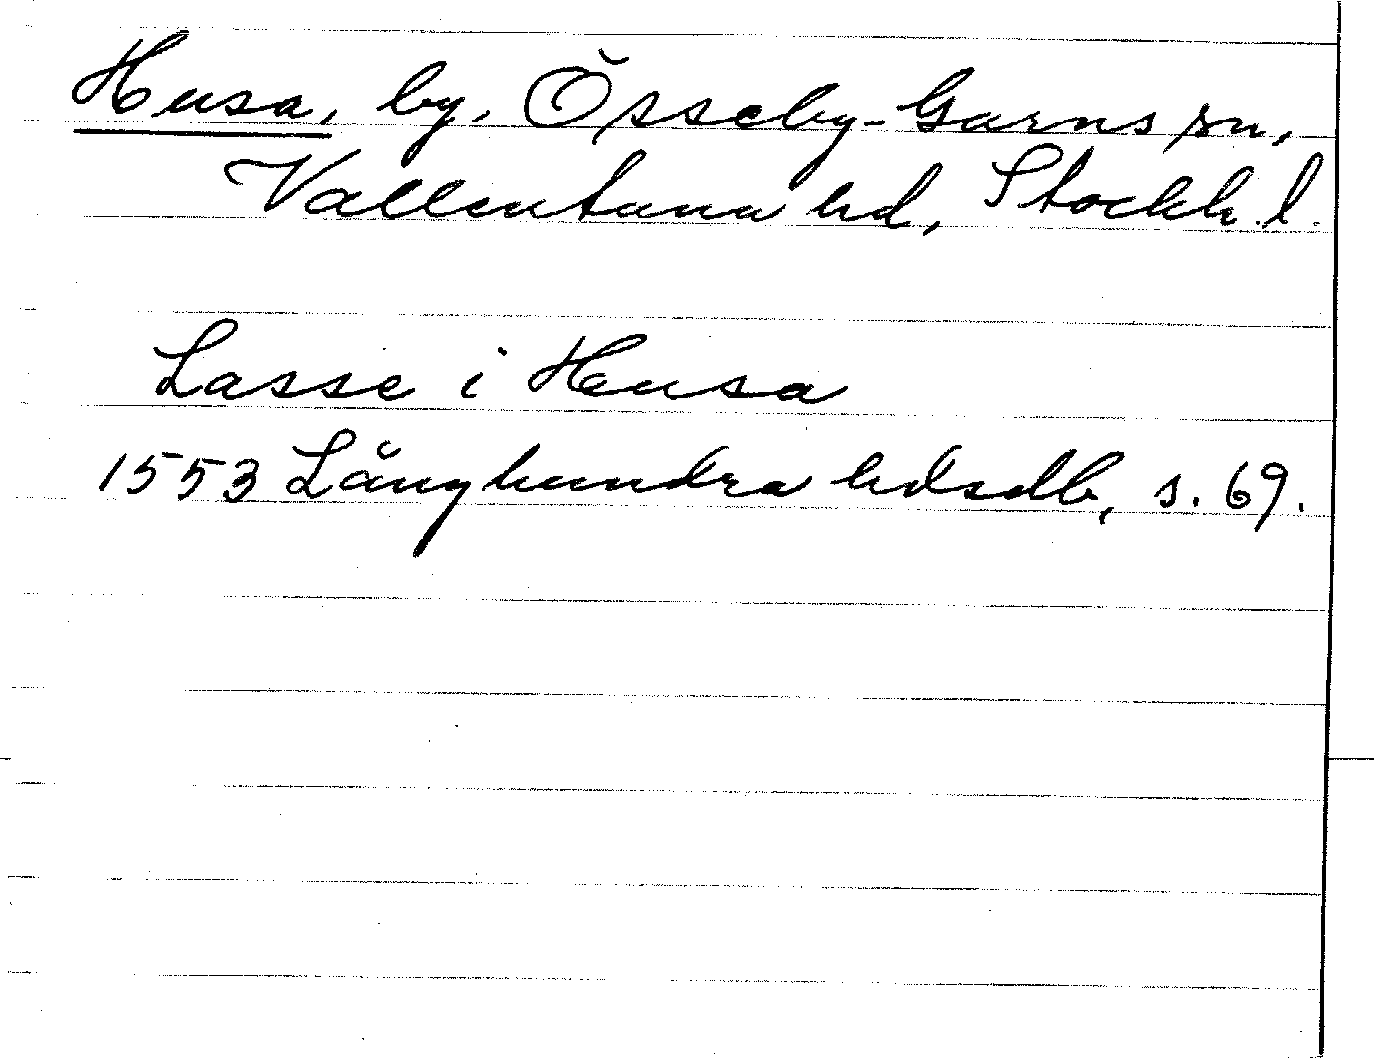 Husa, by, Össeby-Garns sn,
Vallentuna hd, Stockh. l.
Lasse i Husa
1553 Långhundra hdsdb, s. 69.